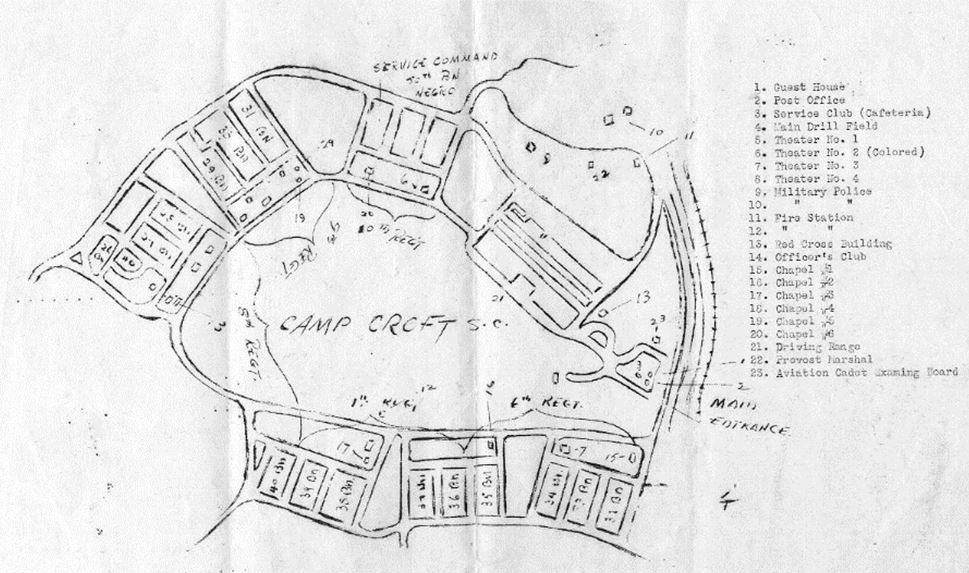 SERVICE COMMAND
50TH BN
NEGRO
31 BN
BN
29 BN
29
10
11
9
22
6
19
20
10TH REGT
9TH REGT.
27 BN
26 BN
3
21
13
23
3
1
2
CAMP CROFT S.C.
5TH REGT.
12
6TH REGT.
MAIN
ENTRANCE
17
7
15
40 BN
39 BN
38 BN
36 BN
35 BN
34 BN
33 BN
1. Guest House
2. Post Office
3. Service Club (Cafeteria)
4. Main Drill Field
5. Theater No. 1
6. Theater No. 2 (Colored)
7. Theater No. 3
8. Theater No. 4
9. Military Police
10. " "
11. Fire Station
12. " "
13. Red Cross Building
14. Officer's Club
15. Chapel #1
16. Chapel #2
17. Chapel #3
18. Chapel #4
19. Chapel #5
20. Chapel #6
21. Driving Range
22. Provost Marshal
23. Aviation Cadet Examing Board